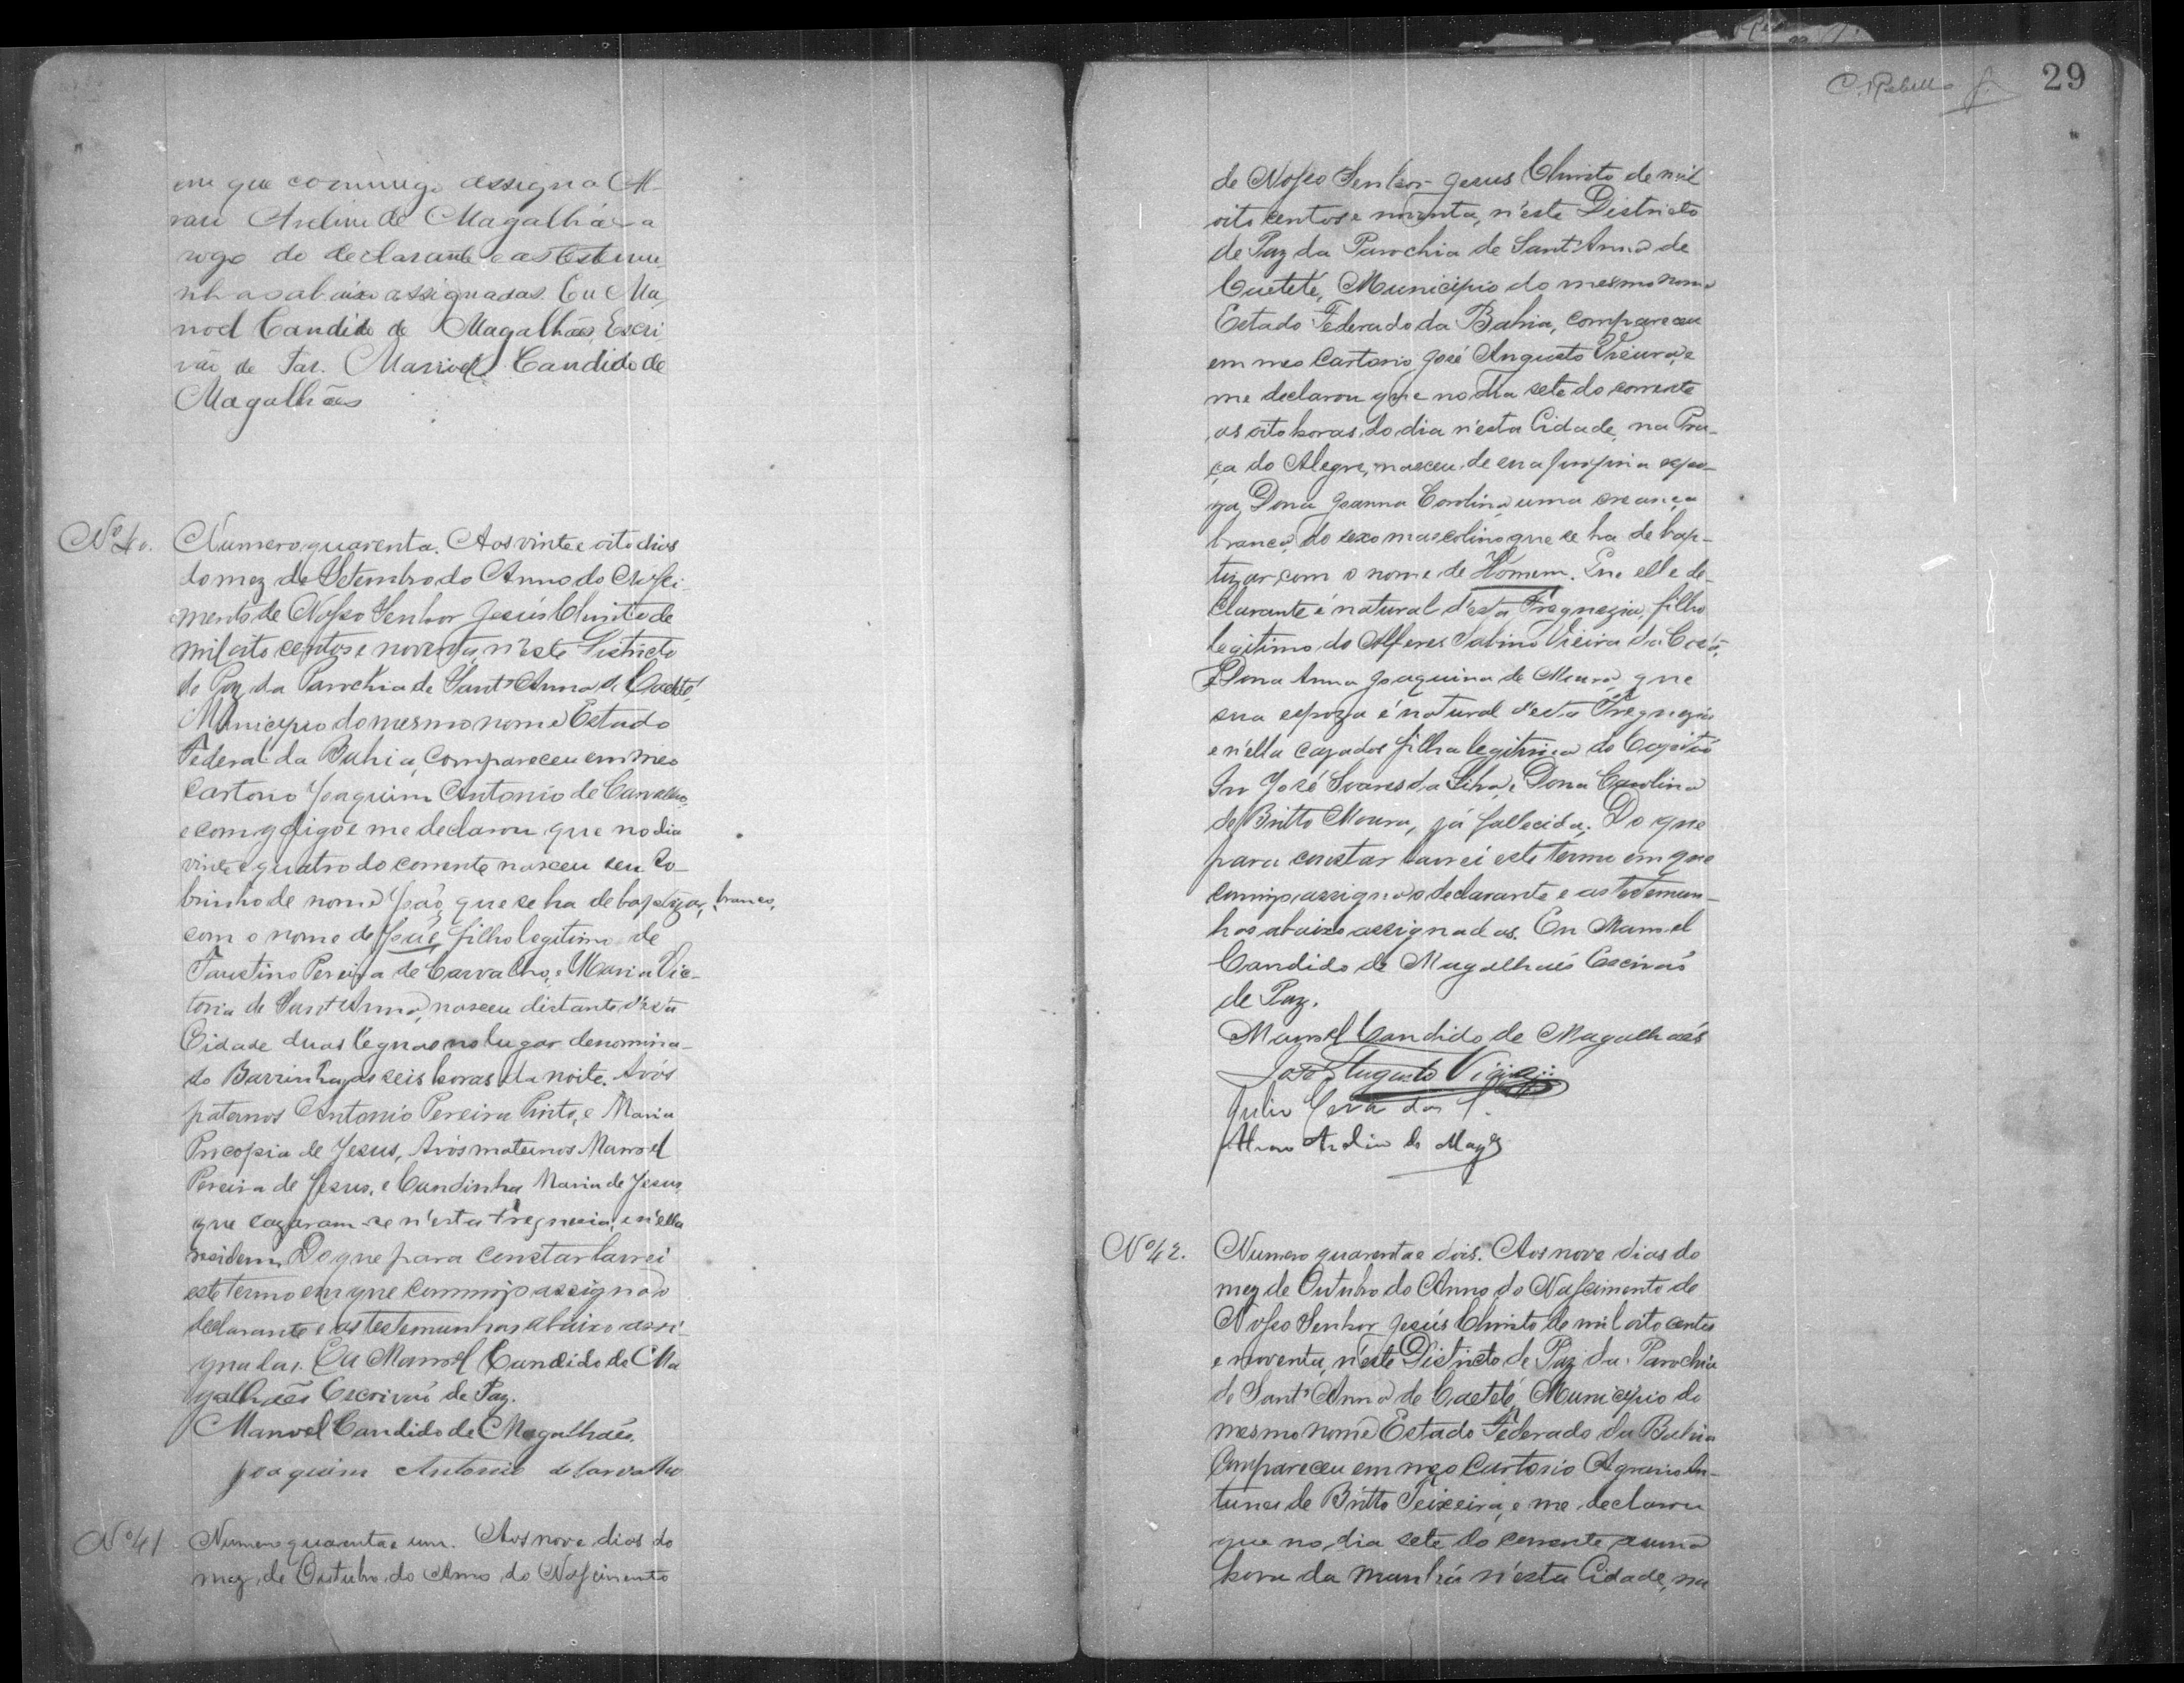 em que commigo assigna Al-
varo Ardim de Magalhães a
rogo do declarante e as testemu-
nhas abaixo assignadas. Eu Ma-
noel Candido de Magalhães, Escri
vão de Paz. Manoel Candido de
Magalhães
Nº 40. Numero quarenta. Aos vinte e oito dias
do mez de Setembro do Anno do Nasci-
mento de Nosso Senhor Jesús Christo de
mil oito centos e noventa, n'este Districto
de Paz da Parochia de Sant'Anna de Caeteté,
Municipio do mesmo nome Estado
Federal da Bahia, compareceu em meo
Cartorio Joaquim Antonio de Carvalho,
e me declarou que no dia
vinte e quatro do corrente nasceu seu so-
brinho de nome João, que se ha de baptizar, branco,
com o nome de José, filho legitimo de
Faustino Pereira de Carvalho, e Maria Vic-
toria de Sant'Anna, nasceu distante d'esta
Cidade duas leguas no lugar denomina-
do Barrinha, as seis horas da noite. Avós
paternos Antonio Pereira Pinto, e Maria
Procopia de Jesus, Avós maternos Manoel
Pereira de Jesus, e Candinha Maria de Jesus,
que cazaram-se n'esta Freguezia, e n'ella
residem. Do que para constar lavrei
este termo em que commigo assigna o
declarante e as testemunhas abaixo assi-
gnadas. Eu Manoel Candido de Ma
galhães Escrivão de Paz.
Manoel Candido de Magalhães.
Joaquim Antonio de Carvalho
Nº 41 Numero quarenta e um. Aos nove dias do
mez de Outubro do Anno do Nascimento
C. Rebello
29
de Nosso Senhor Jesus Christo de mil
oito centos e noventa, n'este Districto
de Paz da Parochia de Sant'Anna de
Caeteté, Municipio do mesmo nome
Estado Federado da Bahia, compareceu
em meo Cartorio José Augusto Vieira, e
me declarou que no dia sete do corrente
as oito horas do dia n'esta Cidade, na Pra-
ça do Alegre, nasceu de sua propria espo-
za, Dona Joanna Carolina, uma creança
branca, do sexo mascolino que se ha de bap-
tizar com o nome de Homem. Que elle de-
clarante é natural d'esta Freguezia, filho
legitimo do Alferes Sabino Vieira da Costa,
e Dona Anna Joaquina de Moura, que
sua espoza é natural d'esta Freguezia
e n'ella cazados filha legitima do Capitão
José Soares da Silva, e Dona Carolina
de Britto Moura, já fallecida. Do que
para constar lavrei este termo em que
commigo assigna o declarante e as testemun-
has abaixo assignadas. Eu Manoel
Candido de Magalhães Escrivão
de Paz.
Manoel Candido de Magalhães
José Augusto Vieira
Julio dos
Alvaro Ardim de Magés
Nº 42. Numero quarenta e dois. Aos nove dias do
mez de Outubro do Anno do Nascimento de
Nosso Senhor Jesús Christo de mil oito centos
e noventa, n'este Districto de Paz da Parochia
de Sant'Anna de Caeteté, Municipio do
mesmo nome Estado Federado da Bahia
Compareceu em meo Cartorio An-
tunes de Britto Teixeira, e me declarou
que no dia sete do corrente a uma
hora da manhã n'esta Cidade, na